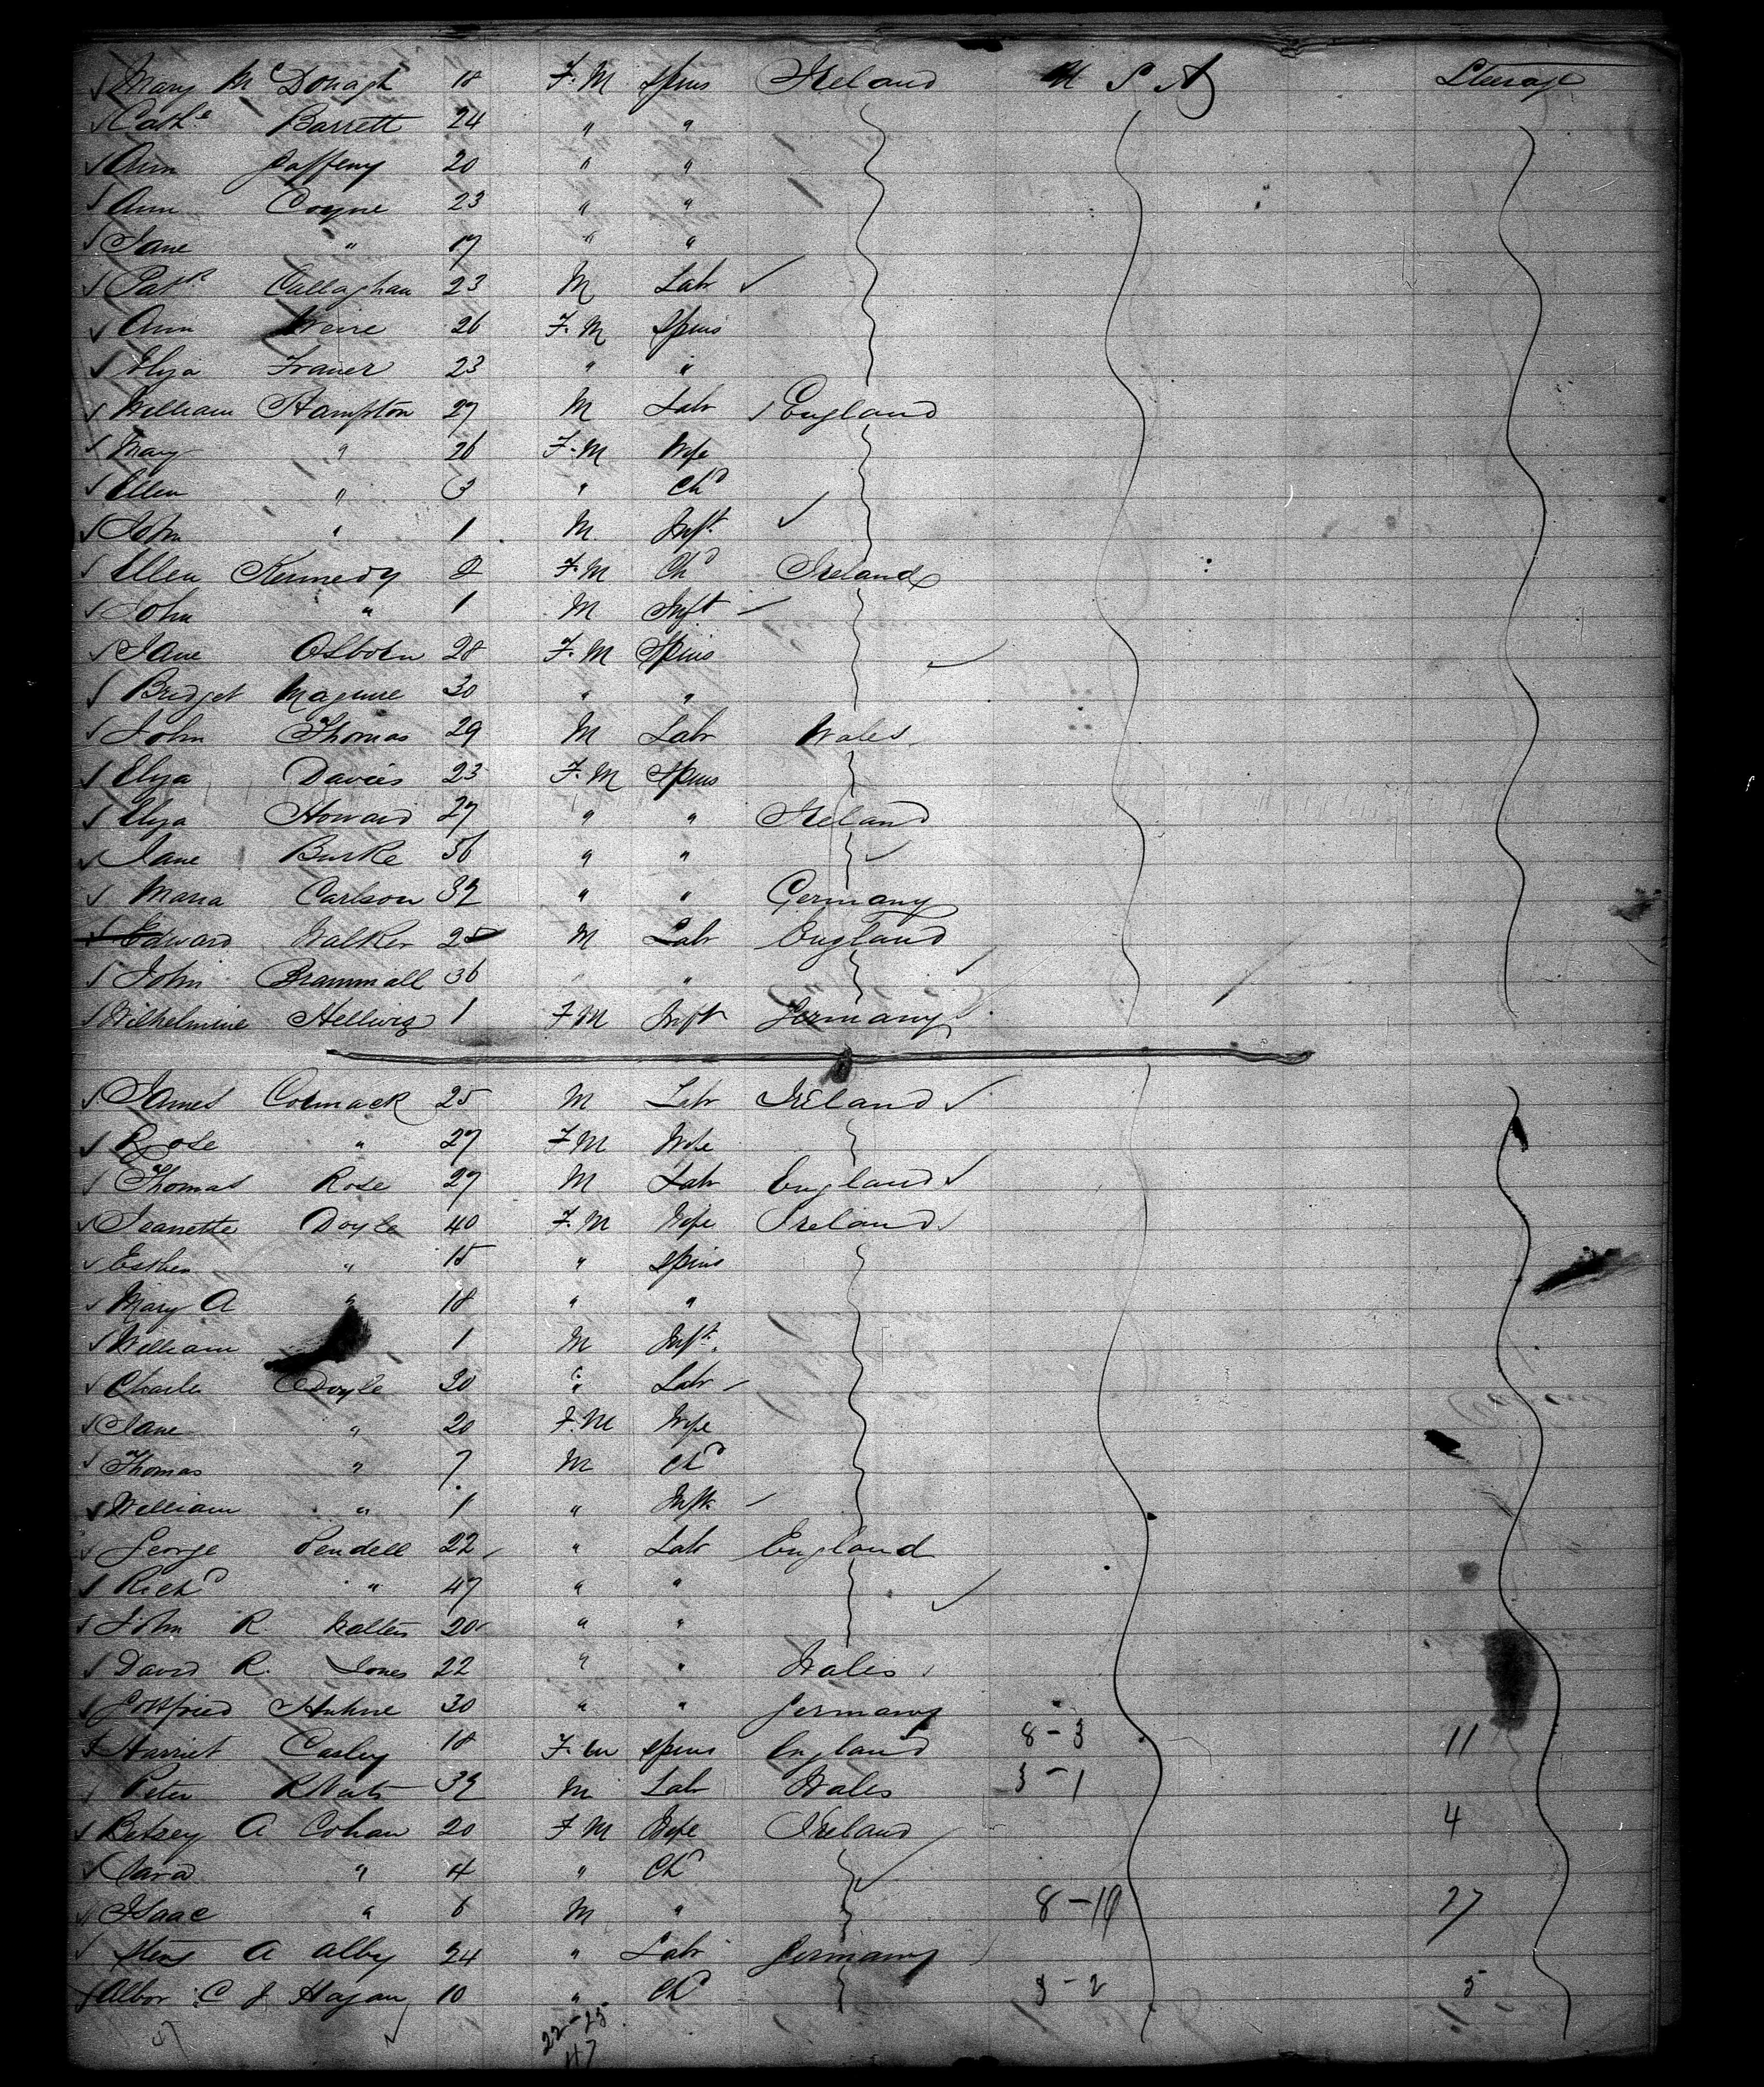 Mary McDonagh 18 F. M Spins Ireland U S A Steerage
Cathe Barrett 24 " "
Ann Gaffeny 20 " "
Ann Coyne 23 " "
Jane " 17 " "
Patk Callaghan 23 M Labr
Ann 26 F. M Spins
Eliza 23 " "
William Hampton 27 M Labr England
Mary " 26 F. M Wife
Ellen " 3 " Chd
John " 1 M Inft
Ellen Kennedy F. M Chd Ireland
John " 1 M Inft
Jane Osborn 28 F. M Spins
Bridget Maguire 30 " "
John Thomas 29 M Labr Wales
Eliza Davies 23 F. M Spins
Eliza Howard 27 " " Ireland
Jane Burke 36 " "
Maria Carlson 32 " " Germany
Edward Walker 25 M Labr England
John Brammall 36 "
Wilhelmine Hellwig 1 F M Inft Germany
James Cormack 25 M Labr Ireland
Rose " 27 F M Wife
Thomas Rose 27 M Labr England
Jeanette Doyle 40 F. M Wife Ireland
Esther " 15 " Spins
Mary A " 18 " "
William 1 M Inft.
Charles Doyle 30 " Labr
Jane " 20 F. M Wife
Thomas " 7 M Chd
William " 1 " Inft
George Pendell 22 " Labr England
Richd " 47 " "
John R. Walters 20 " "
David R. Jones 22 " " Wales
Gottfried 30 " " Germany
Harriet Casley 18 F. M Spins England 8-3 11
Peter 32 M Labr Wales 3-1
Betsey A Cohan 20 F M Wife Ireland 4
Sara " 4 " Chd
Isaac " 6 M " 8-10 27
A Alby 24 " Labr Germany
C J Hagan 10 " Chd 3-2 5
22-25
47